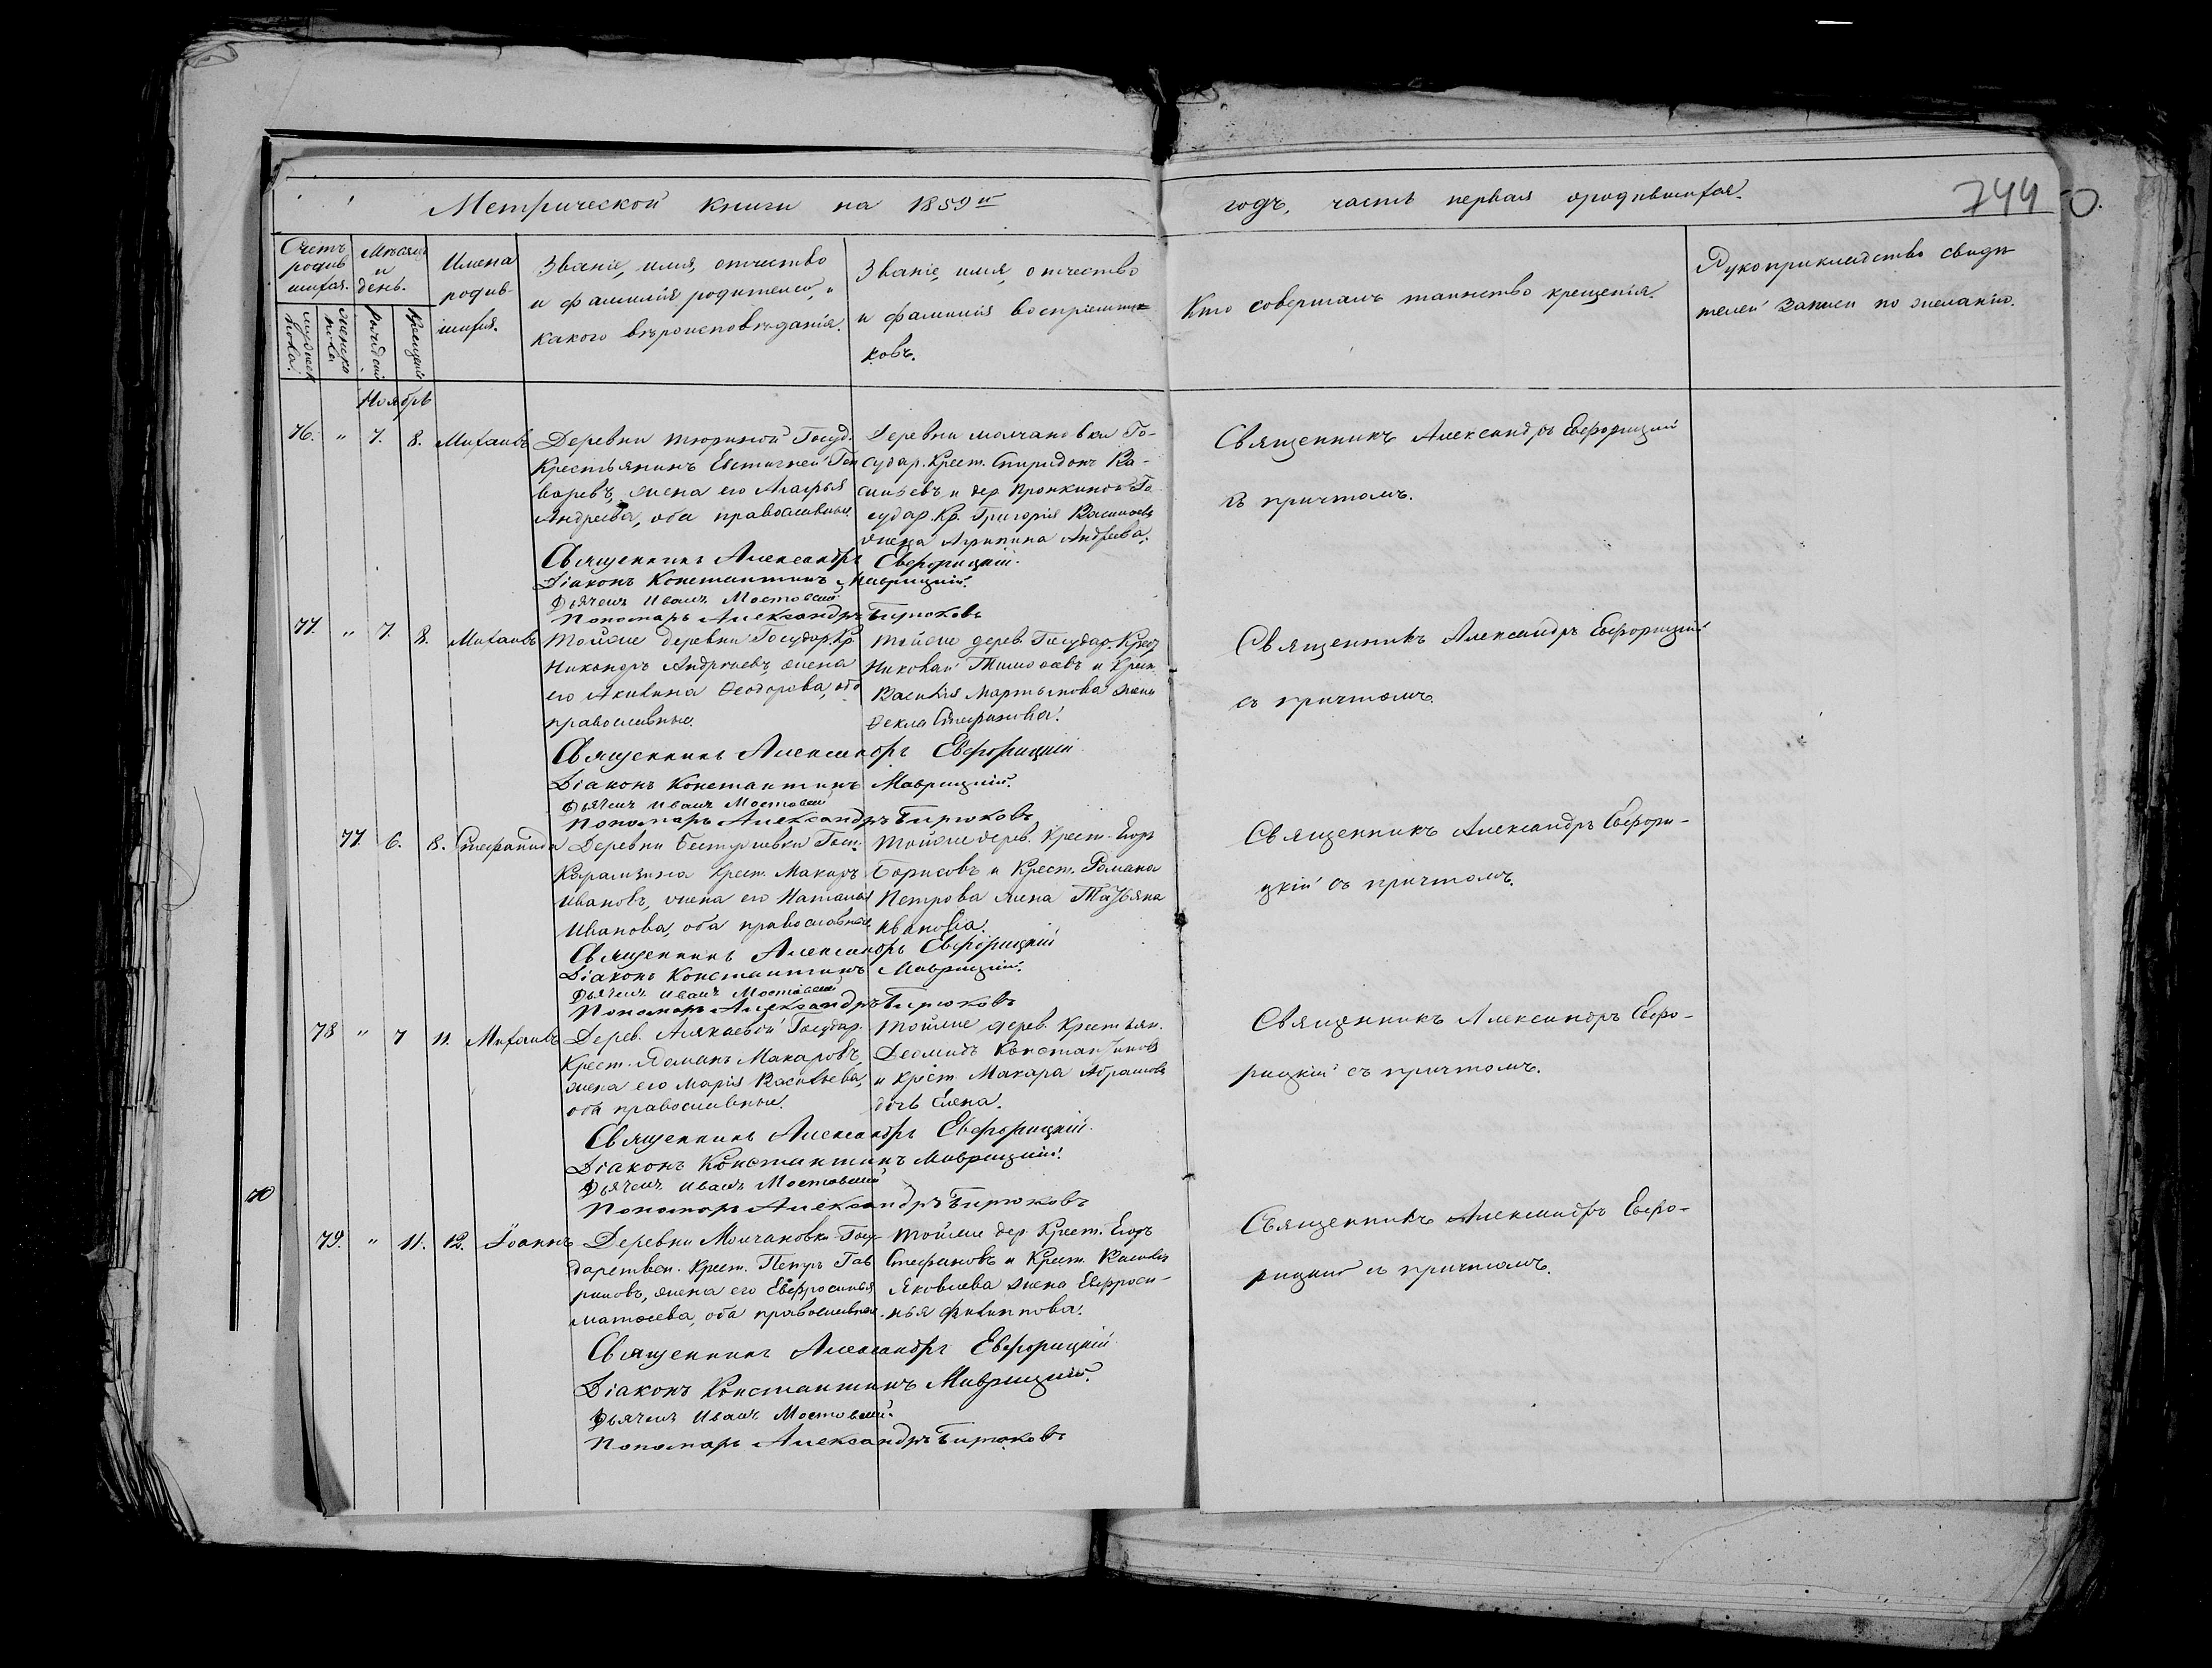 Метрической книги на 1859й
годъ, часть первая ородившихся.
744
Счетъ родив шихся.
Мѣсяцъ и день.
Имена родив- шихся.
Званіе, имя, отчество
и фамилія родителей, и
какого вѣроисповѣданія.
Званіе, имя, отчество
и фамилія воспріемни-
ковъ.
Кто совершалъ таинство крещенія.
Рукоприкладство свидѣ-
телей записи по желанію.
мужеск пола.
женска пола
рожденія
крещенія
Ноябрь
76. " 7. 8. Михаилъ
Деревни Тюриной Госуд.
Крестьянинъ Евстигней
варевъ, жена его Агафья
Андреева, оба православные.
Деревни Молчановки Го-
судар. Крест. Спиридонъ Ва-
сильевъ и дер. Пронкиной Го-
судар. Кр. Григорія Васильева
жена Агрипина Андреева.
Священникъ Александръ Евфорицкій
съ причтомъ.
Священникъ Александръ Евфорицкій.
Діаконъ Константинъ Маврицкій.
Дьячекъ Иванъ Мостовскій.
Пономарь Александръ Бирюковъ
77. " 7. 8. Михаилъ
Тойже деревни Государ. Кр.
Никандръ Андреевъ, жена
его Акилина Ѳеодорова, оба
православные.
Тойже дерев. Государ. Крест.
Николай Тимоѳеевъ и Крест.
Василія Мартынова жена
Ѳекла Стефанова.
Священникъ Александръ Евфорицкій
съ причтомъ.
Священникъ Александръ Евфорицкій.
Діаконъ Константинъ Маврицкій.
Дьячекъ Иванъ Мостовскій
Пономарь Александръ Бирюковъ
77. 6. 8. Стефанида
Деревни Бестужевки Госп.
Карамзина Крест. Макаръ
Ивановъ, жена его Наталья
Иванова, оба православные.
Тойже дерев. Крест. Егоръ
Борисовъ и Крест. Романа
Петрова жена Татьяна
Иванова.
Священникъ Александръ Евфори-
цкій съ причтомъ.
Священникъ Александръ Евфорицкій
Діаконъ Константинъ Маврицкій.
Дьячекъ Иванъ Мостовскій
Пономарь Александръ Бирюковъ
78 " 7 11. Михаилъ
Дерев. Алякаевой Государ.
Крест. Романъ Макаровъ,
жена его Марія Васильева,
оба православные.
Тойже дерев. Крестьян.
Деомидъ Константиновъ
и Крест. Макара Абрамова
дочь Елена.
Священникъ Александръ Евфо-
рицкій съ причтомъ.
Священникъ Александръ Евфорицкій.
Діаконъ Константинъ Маврицкій.
Дьячекъ Иванъ Мостовскій
Пономарь Александръ Бирюковъ
70
79. " 11. 12. Іоаннъ
Деревни Молчановки Госу-
дарствен. Крест. Петръ Гав
риловъ, жена его Евфросинья
Матвеева, оба православные.
Тойже дер. Крест. Егоръ
Стефановъ и Крест. Василія
Яковлева жена Евфроси-
нья Филиппова.
Священникъ Александръ Евфо-
рицкій съ причтомъ.
Священникъ Александръ Евфорицкій.
Діаконъ Константинъ Маврицкій.
Дьячекъ Иванъ Мостовскій.
Пономарь Александръ Бирюковъ